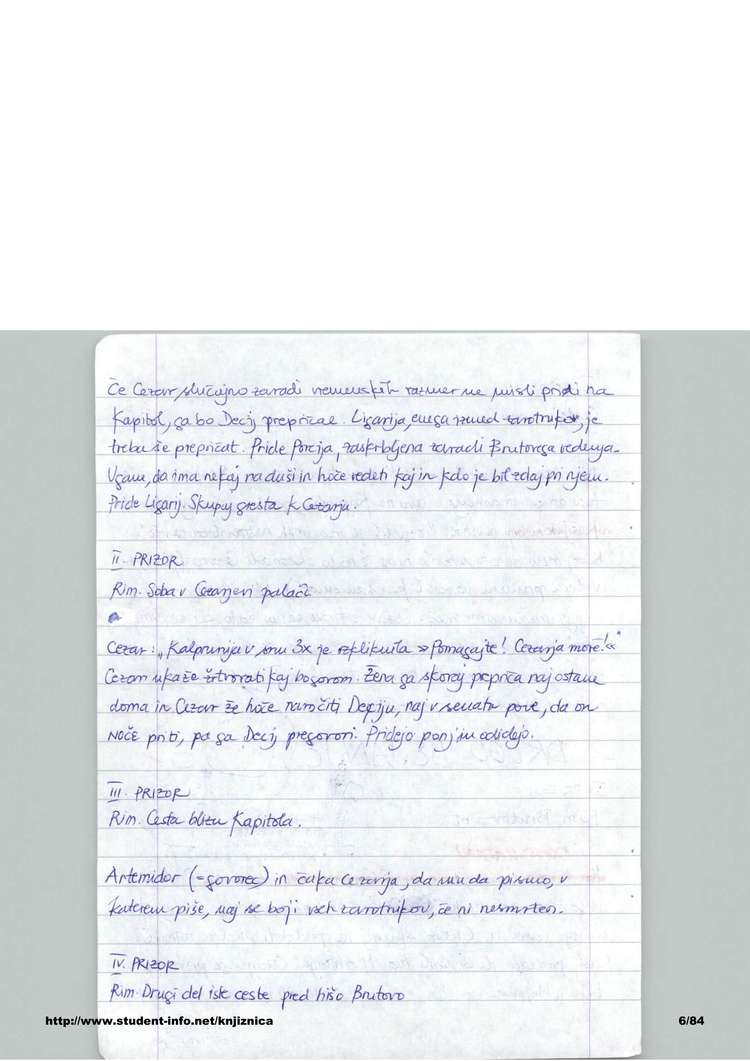 Če Cezar slučajno zaradi vremenskih razmer ne misli pridi na
Kapitol, ga bo Decij prepričal. Ligarija, enega izmed zarotnikov, je
treba še prepričat. Pride Porcija, zaskrbljena zaradi Brutovega vedenja.
Ugane, da ima nekaj na duši in hoče vedeti kaj in kdo je bil zdaj pri njem.
Pride Ligarij. Skupaj gresta k Cezarju.
II. PRIZOR
Rim. Soba v Cezarjevi palači.
Cezar: "Kalpurnija v snu 3x je vzkliknila »Pomagajte! Cezarja more!«"
Cezar ukaže žrtvovati kaj bogovom. Žena ga skoraj prepriča naj ostane
doma in Cezar že hoče naročiti Deciju, naj v senatu pove, da on
NOČE priti, pa ga Decij pregovori. Pridejo ponj in odidejo.
III. PRIZOR
Rim. Cesta blizu Kapitola.
Artemidor (=govorec) in čaka Cezarja, da mu da pismo, v
katerem piše, naj se boji vseh zarotnikov, če ni nesmrten.
IV. PRIZOR
Rim. Drugi del iste ceste pred hišo Brutovo
http://www.student-info.net/knjiznica 6/84